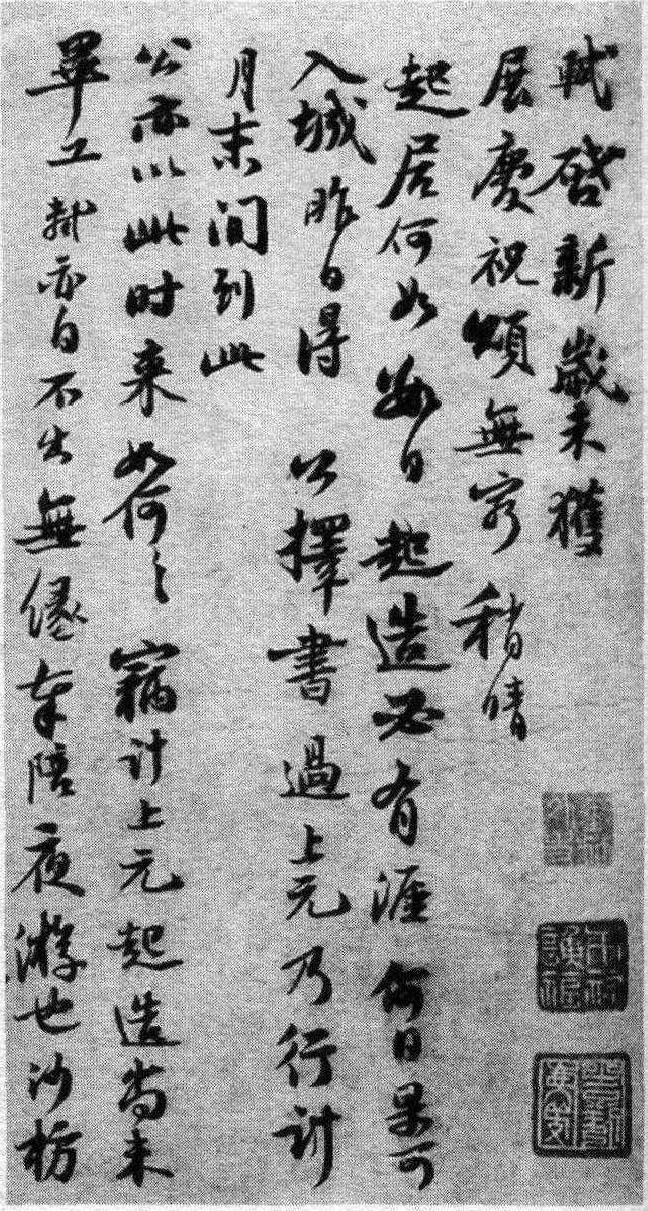 軾啓新歲未獲
展慶祝頌無窮稍晴
起居何如數日起造必有涯何日果可
入城昨日得公擇書過上元乃行計
月末間到此
公亦以此时来如何々竊計上元起造尚未
畢工軾亦自不出無緣奉陪夜遊也沙枋